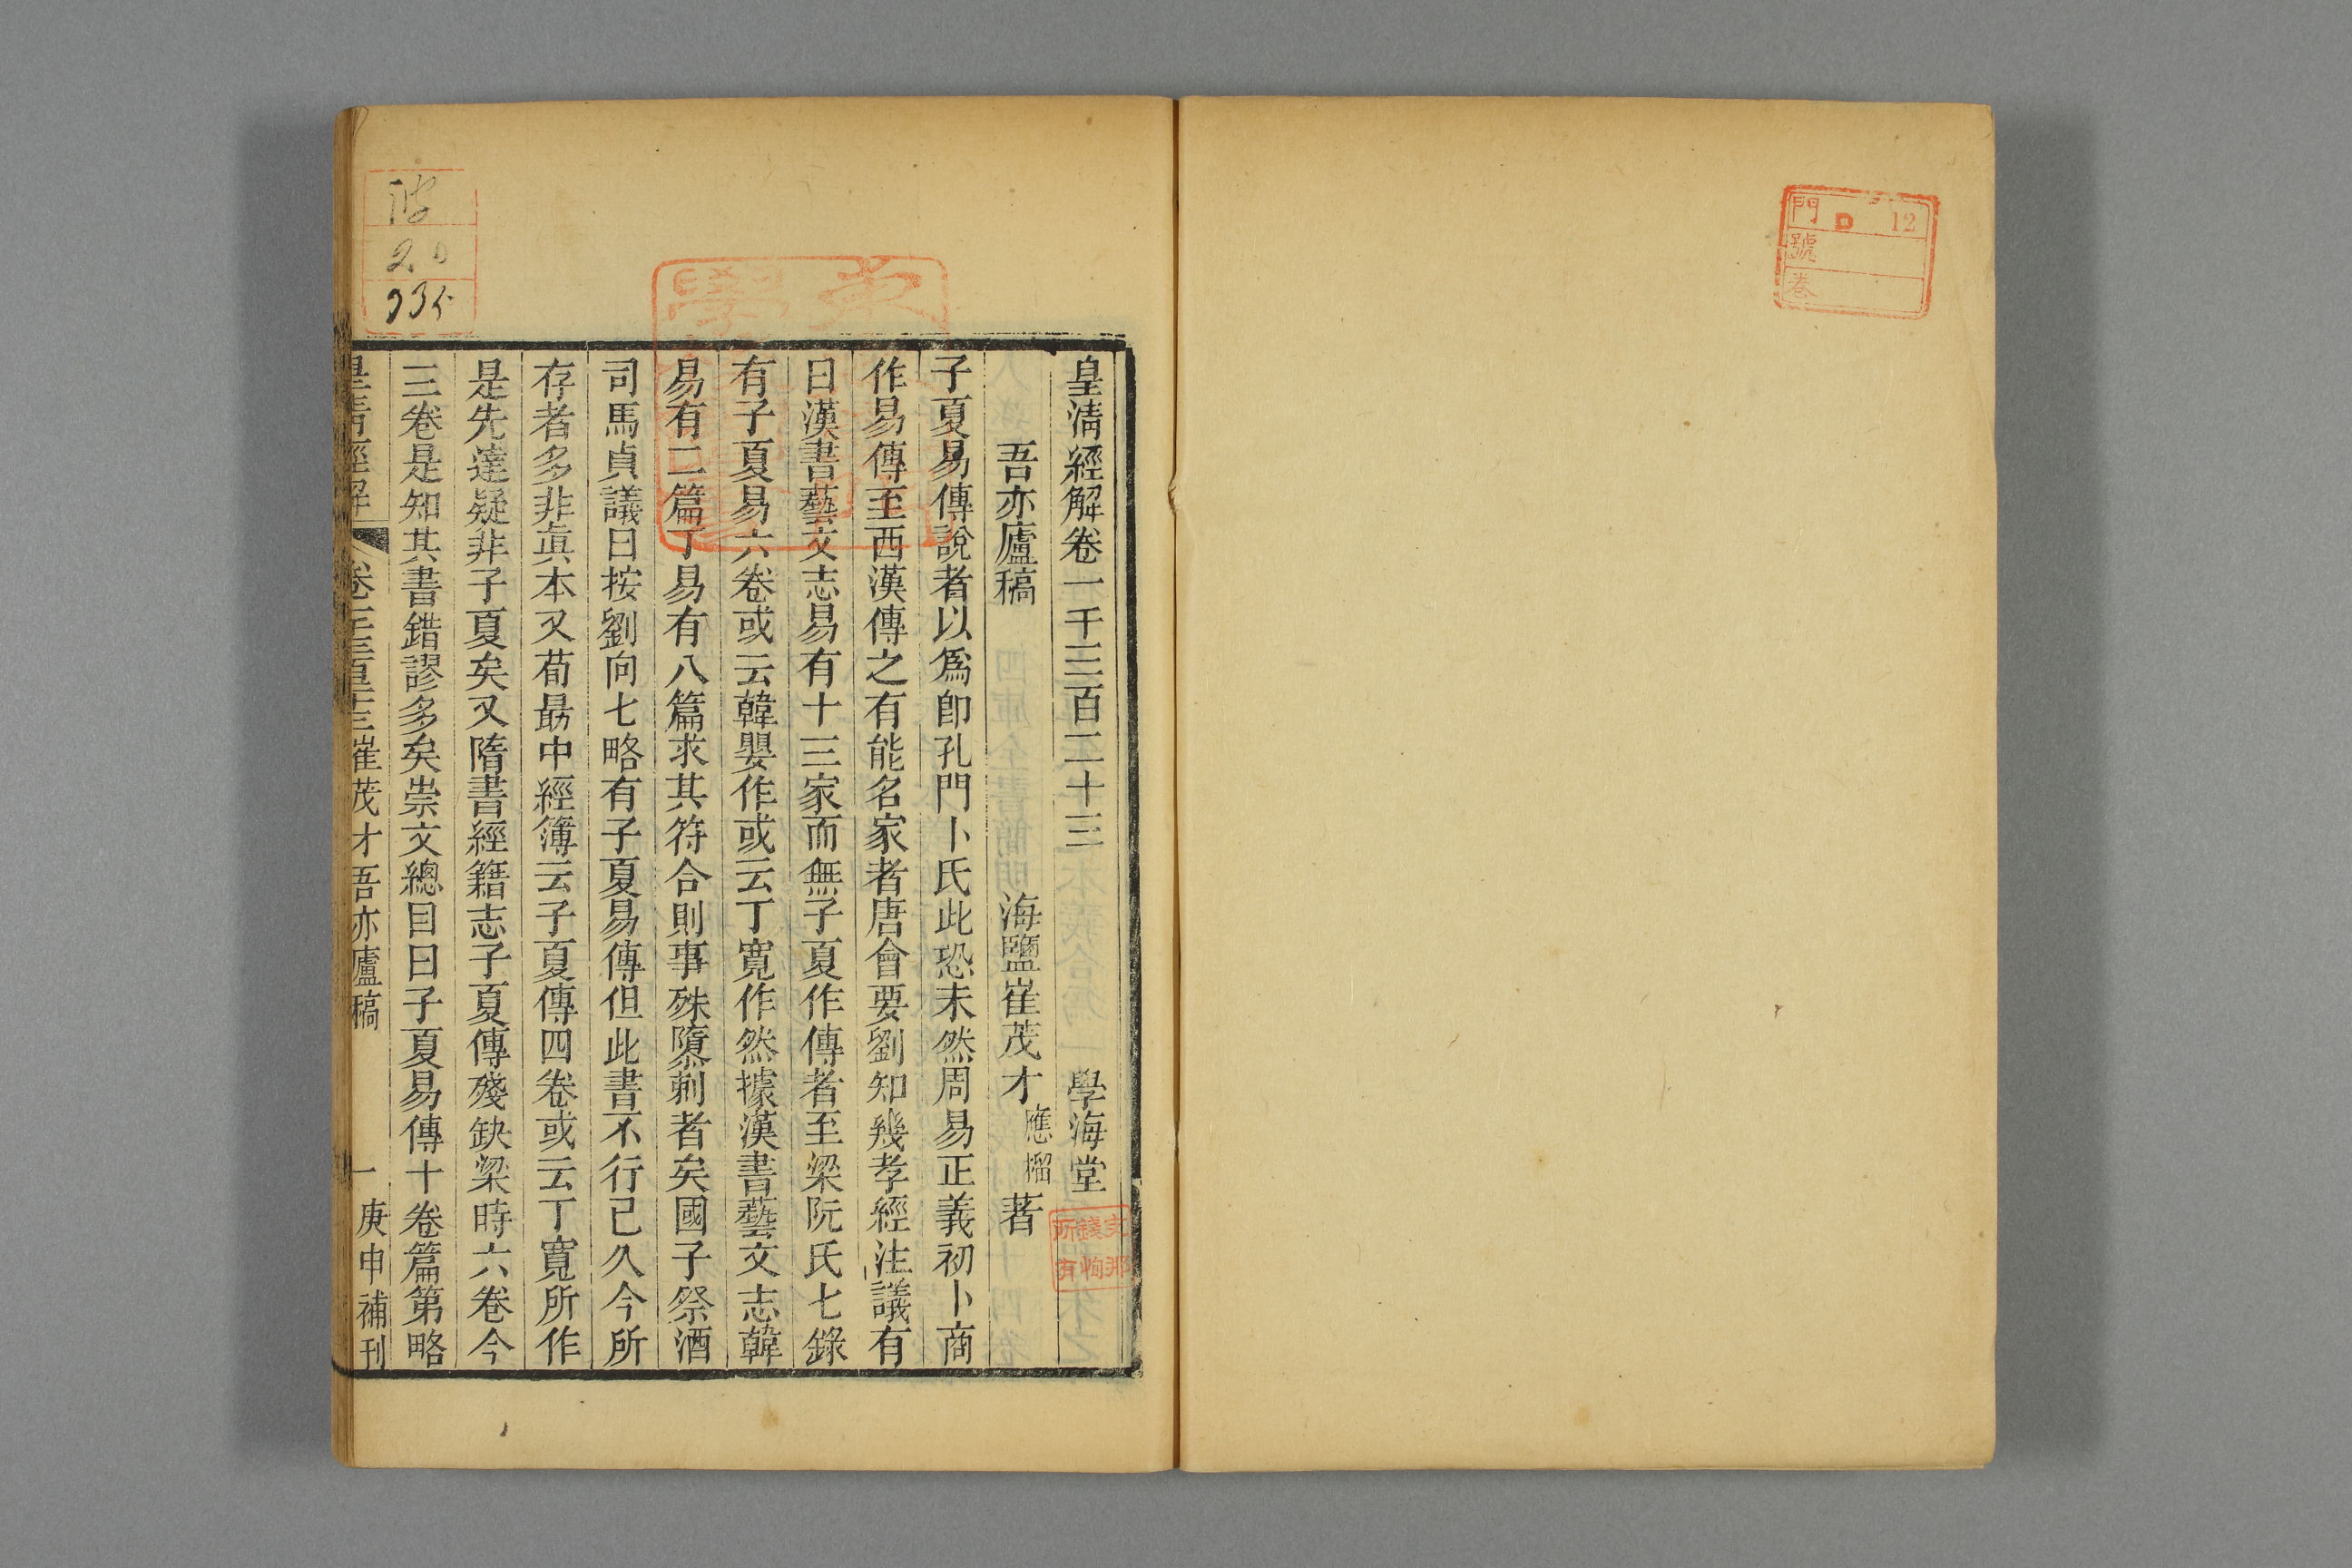 門 D 12
號
卷
皇淸經解卷一千三百二十三 學海堂
吾亦廬稿 海鹽崔茂才應榴著
子夏易傳說者以爲卽孔門卜氏此恐未然周易正義初卜商
作易傳至西漢傳之有能名家者唐會要劉知幾孝經注議有
曰漢書藝文志易有十三家而無子夏作傳者至梁阮氏七錄
有子夏易六卷或云韓嬰作或云丁寬作然據漢書藝文志韓
易有二篇丁易有八篇求其符合則事殊隳剌者矣國子祭酒
司馬貞議曰按劉向七略有子夏易傳但此書不行已久今所
存者多非眞本又荀勗中經簿云子夏傳四卷或云丁寬所作
是先達疑非子夏矣又隋書經籍志子夏傳殘缺梁時六卷今
三卷是知其書錯謬多矣崇文總目曰子夏易傳十卷篇第略
皇淸經解 卷一千三百二十三 崔茂才吾亦廬稿 一 庚申補刊